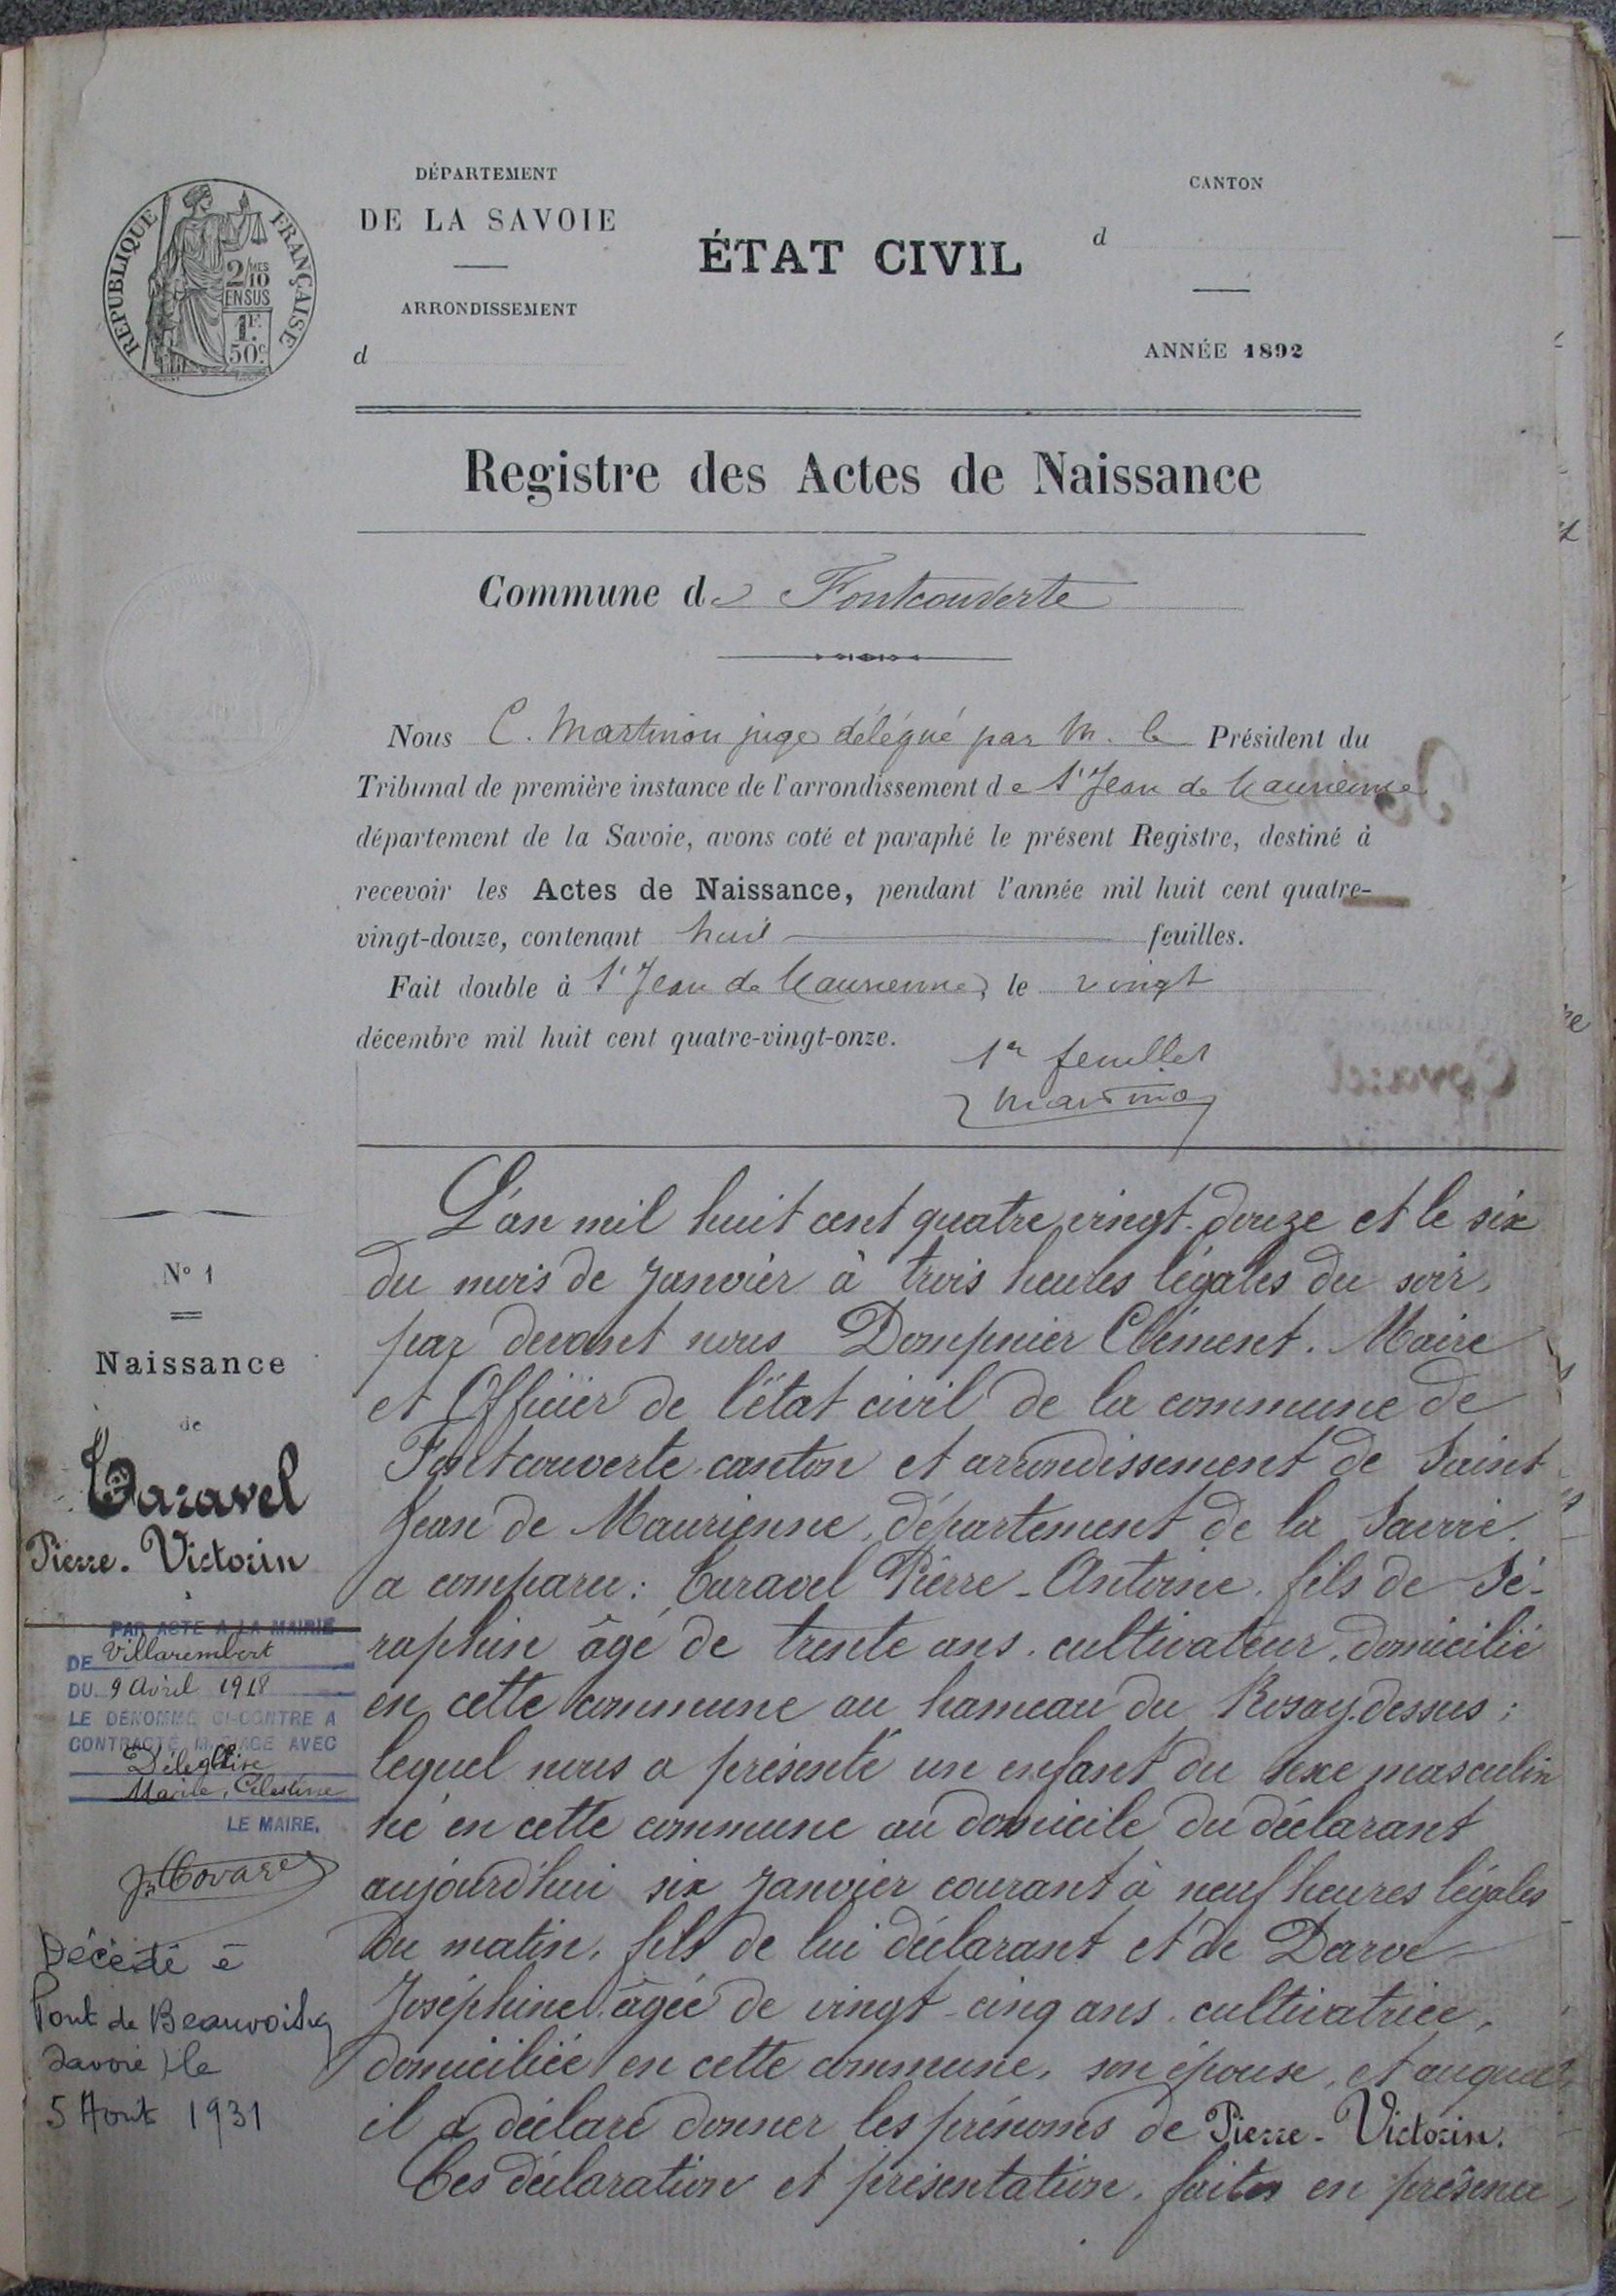 DÉPARTEMENT
DE LA SAVOIE
ARRONDISSEMENT
d
ÉTAT CIVIL
CANTON
d
ANNÉE 1892
RÉPUBLIQUE FRANÇAISE
2/10MES
EN SUS
1F.
50c.
Registre des Actes de Naissance
Commune de Fontcouverte
Nous C. Martinon juge délégué par M. le Président du
Tribunal de première instance de l'arrondissement de St Jean de Maurienne
département de la Savoie, avons coté et paraphé le présent Registre, destiné à
recevoir les Actes de Naissance, pendant l'année mil huit cent quatre-
vingt-douze, contenant huit feuilles.
Fait double à St Jean de Maurienne, le vingt
décembre mil huit cent quatre-vingt-onze.
1er feuillet
Martinon
N° 1
Naissance
de
Taravel
Pierre-Victorin
PAR ACTE A LA MAIRIE
DE Villarembert
DU 9 Avril 1918
LE DÉNOMMÉ CI-CONTRE A
CONTRACTÉ MARIAGE AVEC
Déléglise
Marie, Célestine
LE MAIRE,
Décédé à
Pont de Beauvoisin
Savoie) le
5 Août 1931
L'an mil huit cent quatre vingt-douze et le six
du mois de Janvier à trois heures légales du soir,
par devant nous Dompnier Clément. Maire
et Officier de l'état civil de la commune de
Fontcouverte canton et arrondissement de Saint
Jean de Maurienne, département de la Savoie.
a comparu: Taravel Pierre-Antoine, fils de Sé-
raphin âgé de trente ans, cultivateur, domicilié
en cette commune au hameau du Rosay dessus;
lequel nous a présenté un enfant du sexe masculin
né en cette commune au domicile du déclarant
aujourd'hui six Janvier courant à neuf heures légales
du matin, fils de lui déclarant et de Darve
Joséphine âgée de vingt-cinq ans, cultivatrice,
domiciliée en cette commune, son épouse, et auquel
il a déclaré donner les prénoms de Pierre-Victorin.
Ces déclaration et présentation, faites en présence